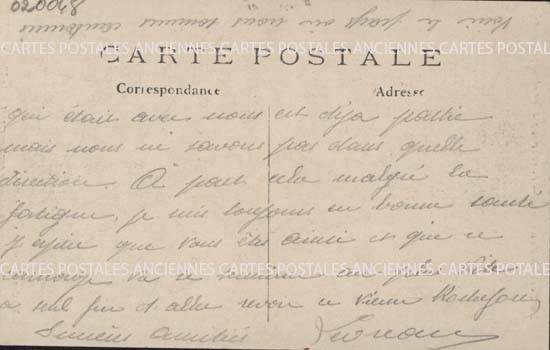 020048
Voici le pays où nous sommes cantonnés
CARTES POSTALES ANCIENNES CARTES POSTALES ANCIENNES CARTES POSTALES ANCIENNES
CARTE POSTALE
Correspondance Adresse
qui était avec nous est déjà partie
mais nous ne savons pas dans quelle
direction. A part cela malgré la
fatigue, je suis toujours en bonne santé
J'espère que vous êtes ainsi et que ce
va se
CARTES POSTALES ANCIENNES CARTES POSTALES ANCIENNES CARTES POSTALES ANCIENNES
a seul fin d'aller revoir ce vieux Rochefort
Sincères amitiés